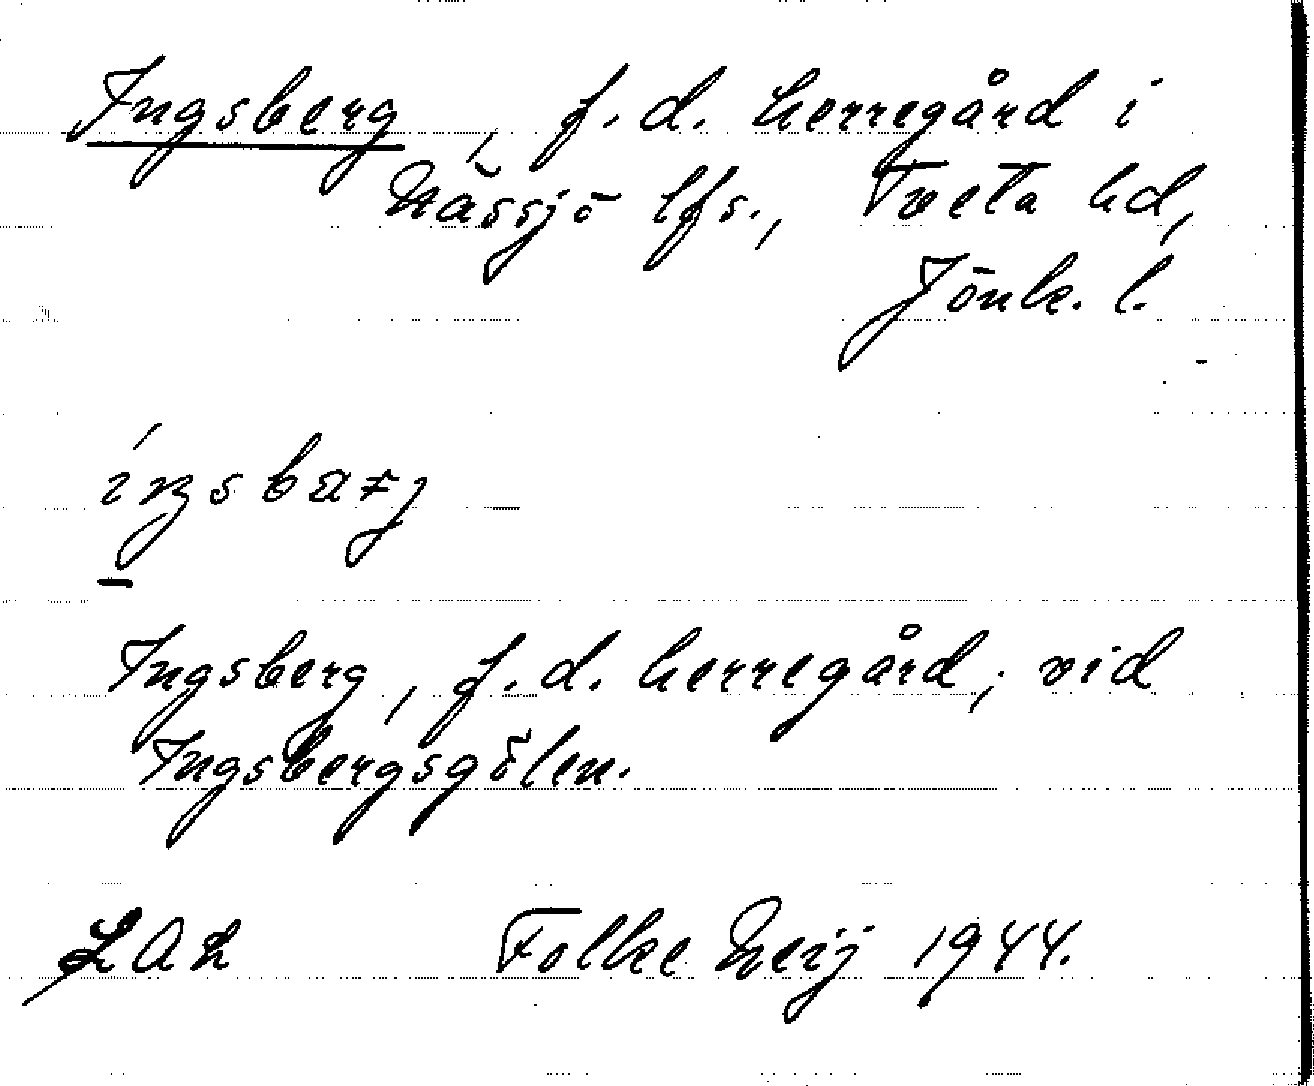 Ingsberg, f.d. herregård i
Nässjö lfs., Tveta hd,
Jönk. l.
Ingsberg, f.d. herregård, vid
Ingsbergsgölen.
Folke Neij 1944.